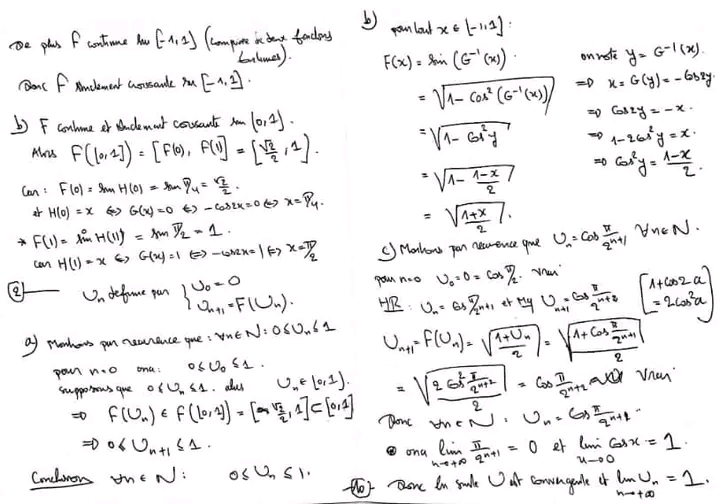 De plus F continue sur [-1,1] (composée de deux fonctions
continues).
Donc F strictement croissante sur [-1,1].
b) F continue et strictement croissante sur [0,1].
Alors F([0,1]) = [F(0), F(1)] = [√2/2, 1].
Car : F(0) = sin H(0) = sin π/4 = √2/2.
et H(0) = x ⇔ G(x) = 0 ⇔ -cos2x = 0 ⇔ x = π/4.
* F(1) = sin H(1) = sin π/2 = 1.
car H(1) = x ⇔ G(x) = 1 ⇔ -cos2x = 1 ⇔ x = π/2
2) Un définie par { U0 = 0
Un+1 = F(Un).
a) Montrons par récurrence que : ∀n∈N : 0≤Un≤1
pour n=0 ona : 0≤U0≤1.
supposons que 0≤Un≤1. alors Un∈[0,1].
⇒ F(Un) ∈ F([0,1]) = [√2/2, 1] ⊂ [0,1]
⇒ 0≤Un+1≤1.
Conclusion ∀n∈N : 0≤Un≤1.
b) pour tout x ∈ [-1,1] :
F(x) = sin(G⁻¹(x)) on note y = G⁻¹(x).
= √(1-cos²(G⁻¹(x))) ⇒ x = G(y) = -cos2y.
= √(1-cos²y) ⇒ cos2y = -x.
⇒ 1-2cos²y = x.
= √(1 - (1-x)/2) ⇒ cos²y = (1-x)/2.
= √((1+x)/2).
c) Montrons par récurrence que Un = cos π/2ⁿ⁺¹ ∀n∈N.
pour n=0 U0 = 0 = cos π/2. vrai
HR : Un = cos π/2ⁿ⁺¹ et Mq Un+1 = cos π/2ⁿ⁺² [1+cos2a
= 2cos²a]
Un+1 = F(Un) = √((1+Un)/2) = √((1+cos π/2ⁿ⁺¹)/2)
= √((2cos² π/2ⁿ⁺²)/2) = cos π/2ⁿ⁺² vrai
Donc ∀n∈N : Un = cos π/2ⁿ⁺¹.
• ona lim n→+∞ π/2ⁿ⁺¹ = 0 et lim x→0 cosx = 1.
Donc la suite U est convergente et lim n→+∞ Un = 1.